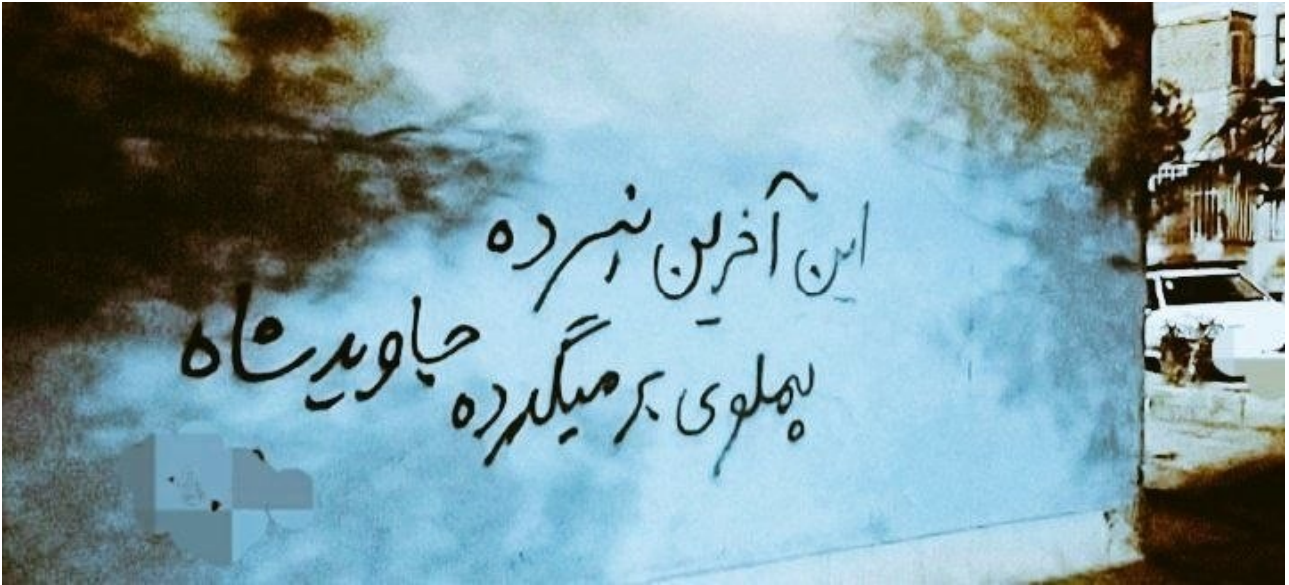 این آخرین نبرده
پهلوی بر میگرده
جاویدشاه